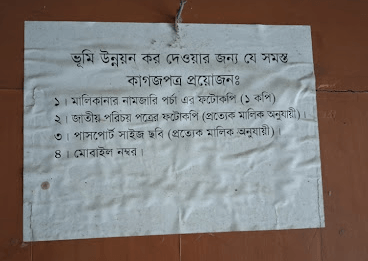 ভূমি উন্নয়ন কর দেওয়ার জন্য যে সমস্ত
কাগজপত্র প্রয়োজনঃ
১। মালিকানার নামজারি পর্চা এর ফটোকপি (১ কপি)
২। জাতীয় পরিচয় পত্রের ফটোকপি (প্রত্যেক মালিক অনুযায়ী)।
৩। পাসপোর্ট সাইজ ছবি (প্রত্যেক মালিক অনুযায়ী)।
৪। মোবাইল নম্বর।